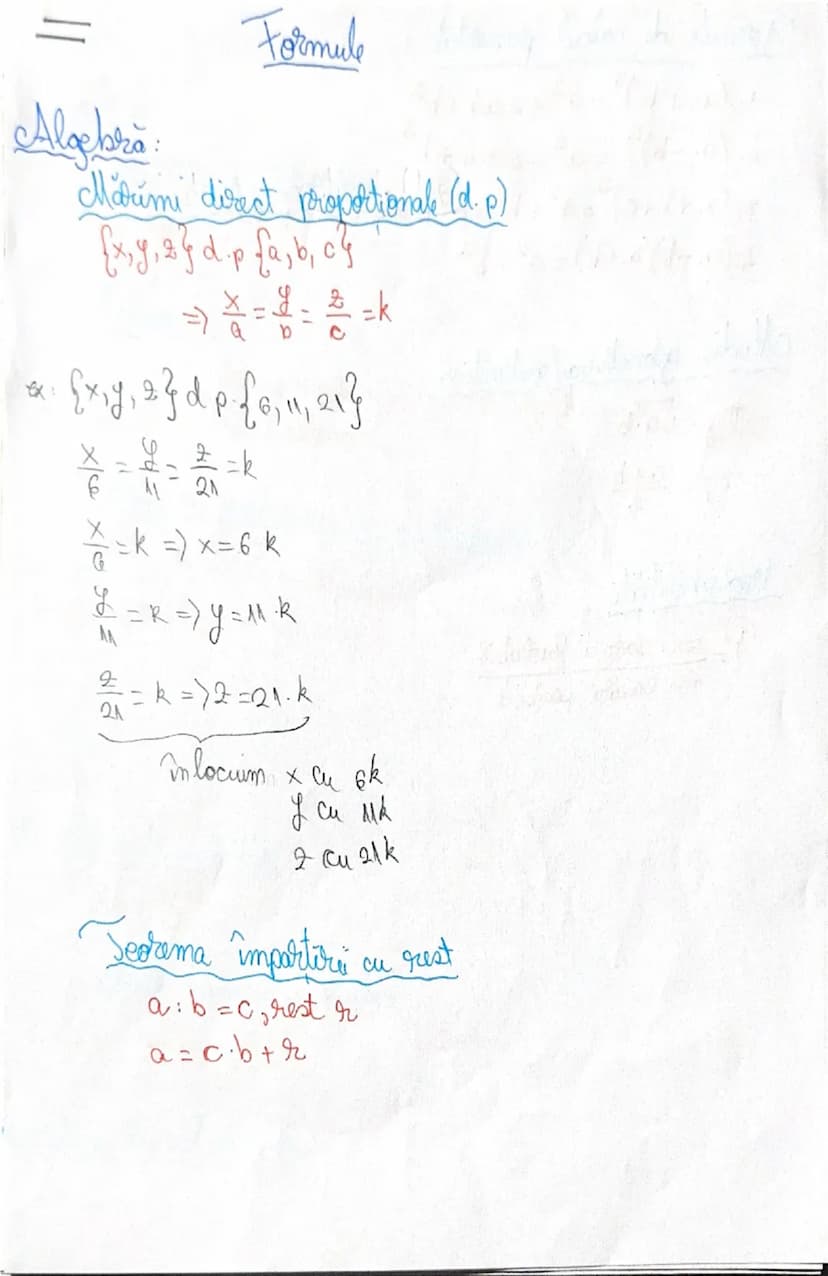 Formule
Algebră:
Mărimi direct proporționale (d.p)
{x, y, z} d.p {a, b, c}
=> x/a = y/b = z/c = k
ex: {x, y, z} d p. {6, 11, 21}
x/6 = y/11 = z/21 = k
x/6 = k => x = 6 k
y/11 = k => y = 11 · k
z/21 = k => z = 21 · k
înlocuim x cu 6k
y cu 11k
z cu 21k
Teorema împărțirii cu rest
a : b = c, rest r
a = c · b + r